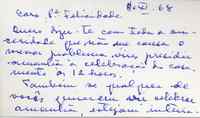 68
Caro Pe Felicidade
Quero dizer-te com toda a sin-
ceridade que não me causa o
menor problema vires presidir
amanhã à celebração do casa
mento às 12 horas.
Também se qualquer de
vocês quiserem vir celebrar
amanhã, estejam